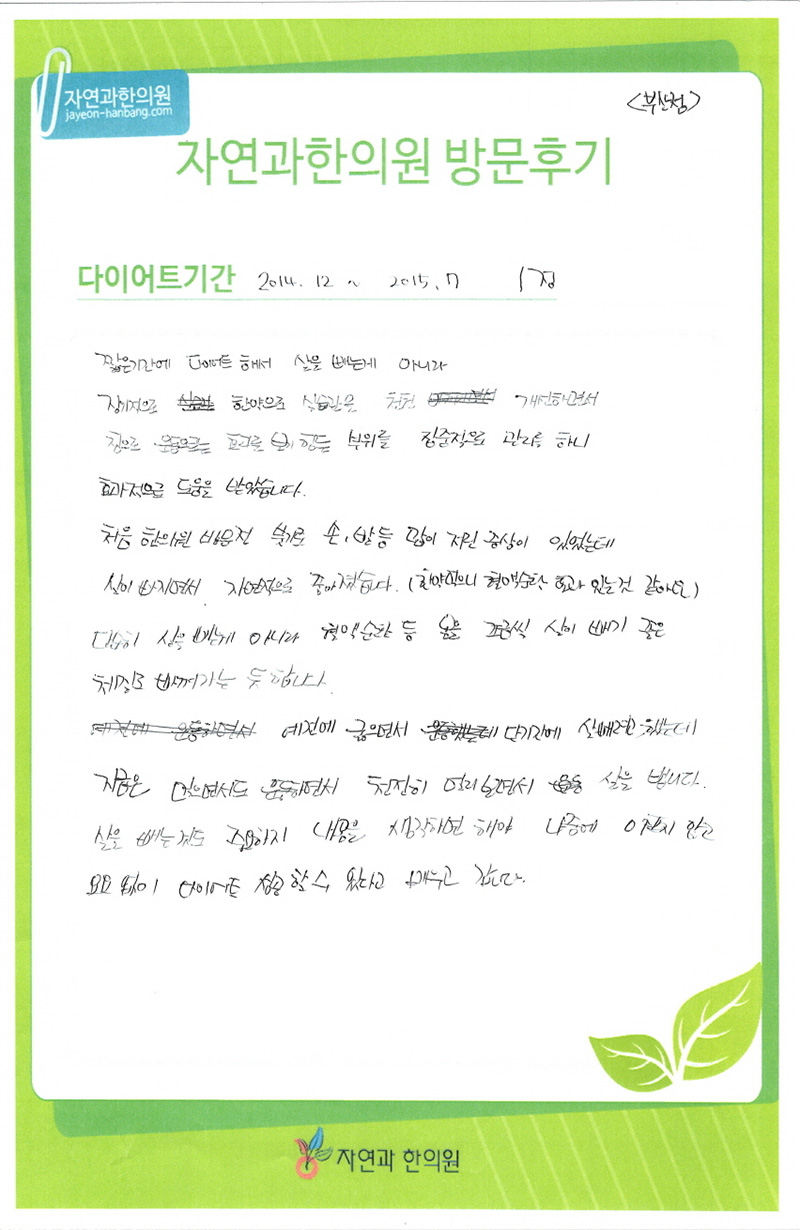 자연과한의원
jayeon-hanbang.com
<부산점>
자연과한의원 방문후기
다이어트기간 2014. 12 ~ 2015. 7
짧은기간에 다이어트 해서 살을 빼는게 아니라
장기적으로 한약으로 식습관을 천천 개선하면서
침으로 효과를 보기 힘든 부위를 집중적으로 관리를 하니
효과적으로 도움을 받았습니다.
처음 한의원 방문전 붓기로 손, 발등 많이 저린 증상이 있었는데
살이 빠지면서 자연적으로 좋아졌습니다. (한약먹으니 혈액순환 효과 있는것 같아요)
단순히 살을 빼는게 아니라 혈액순환 등 몸을 조금씩 살이 빼기 좋은
체질로 바껴가는 듯 합니다.
예전에 운동하면서 예전에 굶으면서 운동했는데 단기간에 살빼려면 했는데
지금은 먹으면서도 운동하면서 천천히 멀리 보면서 살을 뺍니다.
살을 빼는것도 중요하지 내몸을 생각하면 해야 나중에 아프지 않고
요요 없이 다이어트 성공할수 있다고 깨우고 갑니다.
자연과 한의원